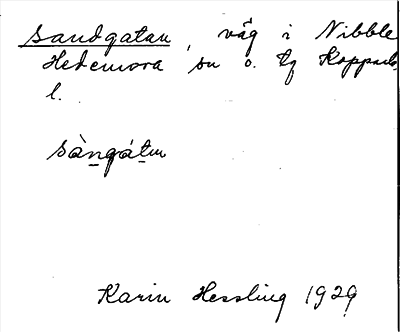 Sandgatan, väg i Nibble
Hedemora sn o. tg Kopparb.
l.
sàngátu
Karin Hessling 1929